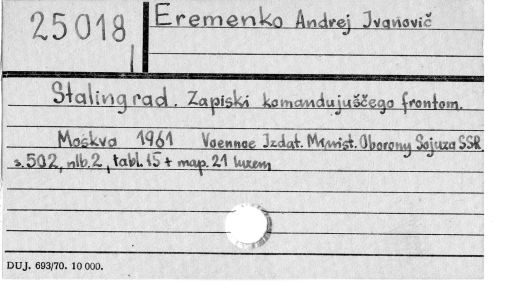 25018
Eremenko Andrej Ivanovič
Stalingrad. Zapiski komandujuščego frontom.
Moskva 1961 Voennoe Izdat. Minist. Oborony Sojuza SSR
s. 502, nlb. 2, tabl. 15 + map. 21 luzem
DUJ. 693/70. 10 000.